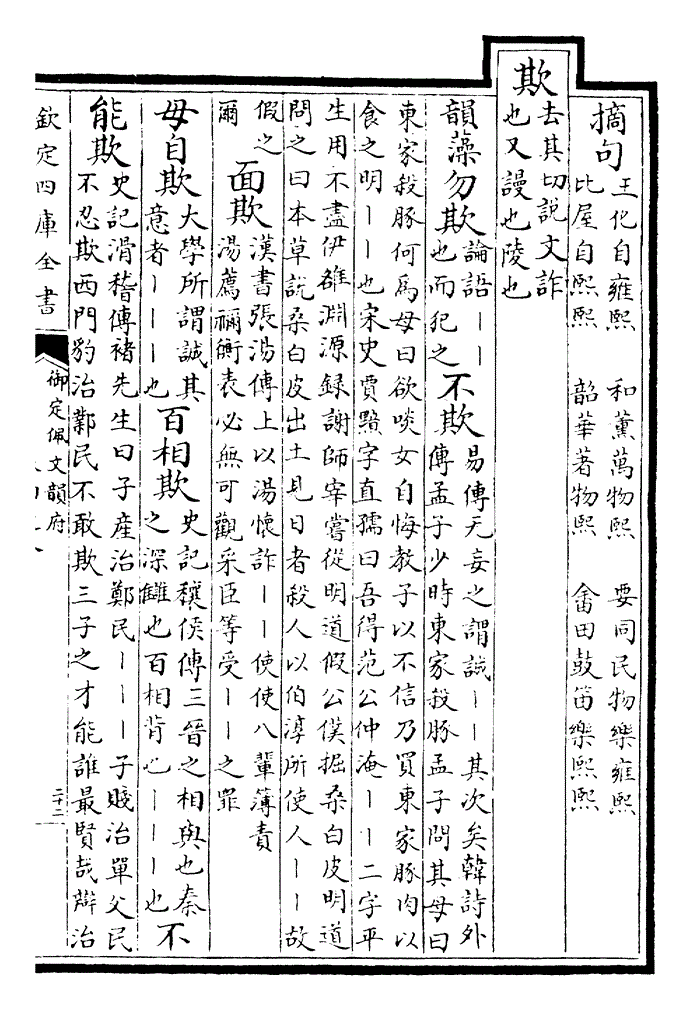 摘句
王化自雍熙　和薰萬物熙　要同民物樂雍熙
比屋自熙熙　韶華著物熙　畬田鼓笛樂熙熙
欺
去其切說文詐
也又謾也陵也
韻藻勿欺
論語丨丨
也而犯之
不欺
易傳无妄之謂誠丨丨其次矣韓詩外
傳孟子少時東家殺豚孟子問其母曰
東家殺豚何爲母曰欲啖女自悔教子以不信乃買東家豚肉以
食之明丨丨也宋史賈黯字直孺曰吾得范公仲淹丨丨二字平
生用不盡伊雒淵源録謝師宰嘗從明道假公僕掘桑白皮明道
問之曰本草說桑白皮出土見日者殺人以伯淳所使人丨丨故
假之
爾
面欺
漢書張湯傳上以湯懷詐丨丨使使八輩簿責
湯薦禰衡表必無可觀采臣等受丨丨之罪
毋自欺
大學所謂誠其
意者丨丨丨也
百相欺
史記穰侯傳三晉之相與也秦
之深讎也百相背也丨丨丨也
不
能欺
史記滑稽傳褚先生曰子產治鄭民丨丨丨子賤治單父民
不忍欺西門豹治鄴民不敢欺三子之才能誰最賢哉辯治
欽定四庫全書
御定佩文韻府
二十二